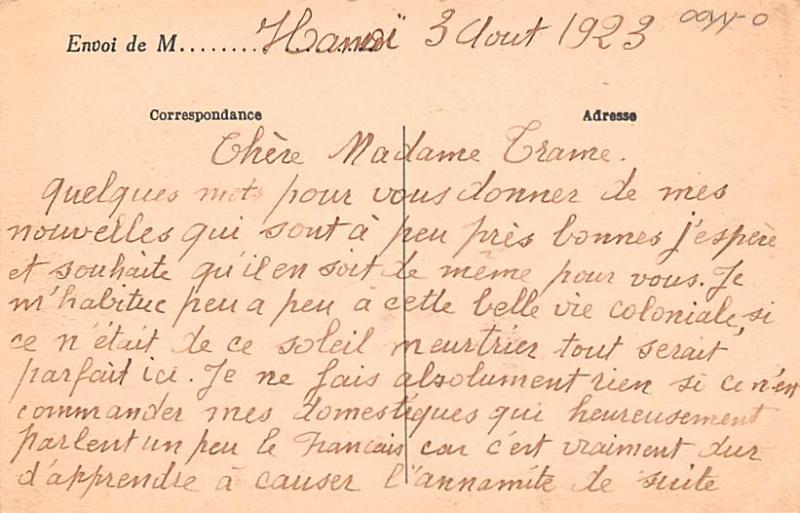 Envoi de M.................. Hanoï 3 Aout 1923
Correspondance
Adresse
Chère Madame Trame.
quelques mots pour vous donner de mes
nouvelles qui sont à peu près bonnes j'espère
et souhaite qu'il en soit de même pour vous. Je
m'habitue peu a peu à cette belle vie coloniale, si
ce n'était de ce soleil meurtrier tout serait
parfait ici. Je ne fais absolument rien si ce n'est
commander mes domestiques qui heureusement
parlent un peu le Francais car c'est vraiment dur
d'apprendre à causer l'annamite de suite